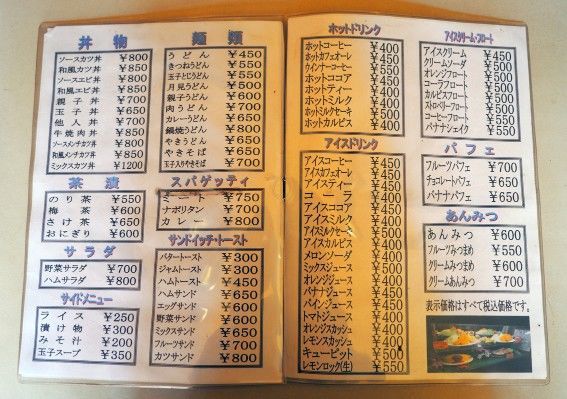 丼物
ソースカツ丼 ￥800
和風カツ丼 ￥850
ソースエビ丼 ￥800
和風エビ丼 ￥850
親子丼 ￥700
玉子丼 ￥650
他人丼 ￥700
牛焼肉丼 ￥850
ソースメンチカツ丼 ￥800
和風メンチカツ丼 ￥850
ミックスカツ丼 ￥1200
茶漬
のり茶 ￥550
梅茶 ￥600
さけ茶 ￥650
おにぎり ￥600
サラダ
野菜サラダ ￥700
ハムサラダ ￥800
サイドメニュー
ライス ￥250
漬け物 ￥300
みそ汁 ￥200
玉子スープ ￥350
麺類
うどん ￥450
きつねうどん ￥550
玉子とじうどん ￥550
月見うどん ￥550
親子うどん ￥600
肉うどん ￥700
カレーうどん ￥650
鍋焼うどん ￥800
やきうどん ￥650
やきそば ￥650
玉子入りやきそば ￥700
スパゲッティ
ミート ￥750
ナポリタン ￥700
カレー ￥800
サンドイッチ・トースト
バタートースト ￥300
ジャムトースト ￥300
ハムトースト ￥450
ハムサンド ￥650
エッグサンド ￥600
野菜サンド ￥600
ミックスサンド ￥650
フルーツサンド ￥700
カツサンド ￥800
ホットドリンク
ホットコーヒー ￥400
ホットカフェオーレ ￥450
ウインナーコーヒー ￥500
ホットココア ￥450
ホットティー ￥400
ホットミルク ￥400
ホットミルクセーキ
ホットカルピス ￥400
アイスドリンク
アイスコーヒー ￥450
アイスカフェオーレ ￥450
アイスティー ￥450
コーラ
アイスココア
アイスミルク
アイスミルクセーキ
アイスカルピス
メロンソーダ
ミックスジュース
オレンジジュース
バナナジュース ￥450
パインジュース ￥450
トマトジュース ￥400
オレンジスカッシュ ￥400
レモンスカッシュ ￥400
キューピット ￥500
レモンロック(生) ￥550
アイスクリーム・フロート
アイスクリーム ￥450
クリームソーダ ￥500
オレンジフロート ￥500
コーラフロート ￥500
カルピスフロート ￥500
ストロベリーフロート ￥500
コーヒーフロート ￥550
バナナンシェイク ￥550
パフェ
フルーツパフェ ￥700
チョコレートパフェ ￥650
バナナパフェ ￥650
あんみつ
あんみつ ￥600
フルーツみつまめ ￥550
クリームみつまめ ￥600
クリームあんみつ ￥700
表示価格はすべて税込価格です。